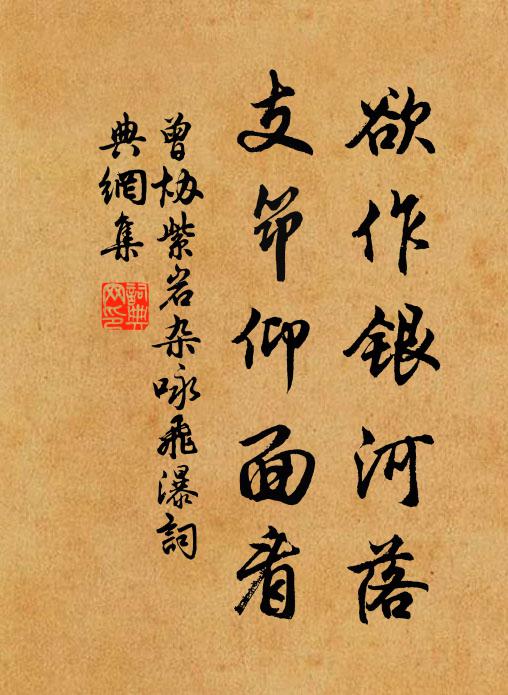 欲作银河落
支筇仰面看
曾协紫岩杂咏飞瀑词
典網集
詞典網印